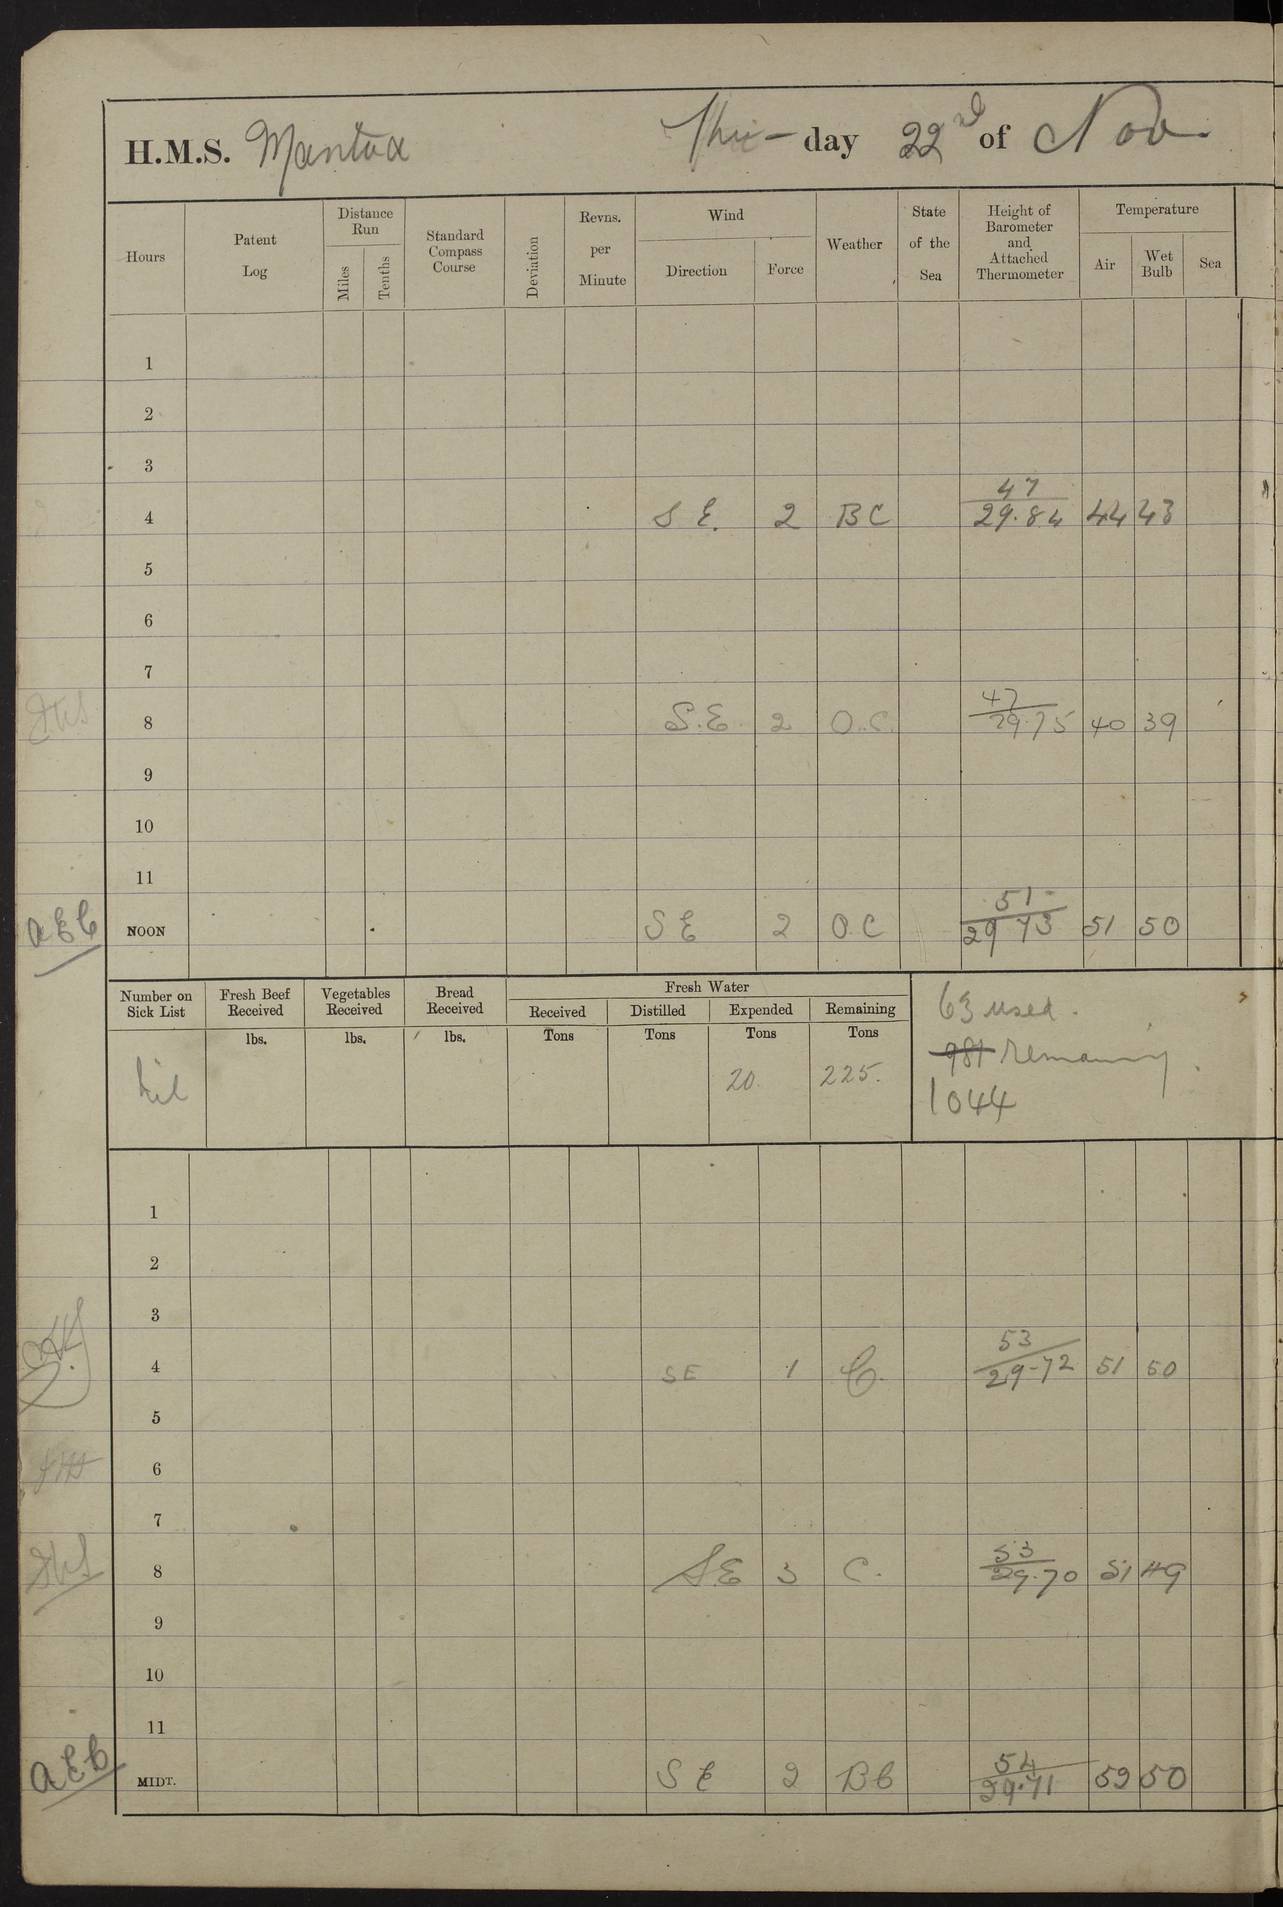 H.M.S. Mantua Thu-day 22nd of Nov
Hours Patent Log Distance Run Miles Tenths Standard Compass Course Deviation Revns. per Minute Wind Direction Force Weather State of the Sea Height of Barometer and Attached Thermometer Temperature Air Wet Bulb Sea
1
2
3
47
4 S E. 2 B C 29.84 44 43
5
6
7
47
8 S.E 2 O.C. 29.75 40 39
9
10
11
51
A E C NOON S E 2 O.C 29 73 51 50
Number on Sick List Fresh Beef Received Vegetables Received Bread Received Fresh Water Received Distilled Expended Remaining
lbs. lbs. lbs. Tons Tons Tons Tons
nil 20. 225.
63 used.
981 Remaining.
1044
1
2
3
53
4 SE 1 C. 29-72 51 50
5
6
7
53
8 SE 3 C. 29.70 51 49
9
10
11
54
A E C MIDT. S E 2 B C 29.71 52 50